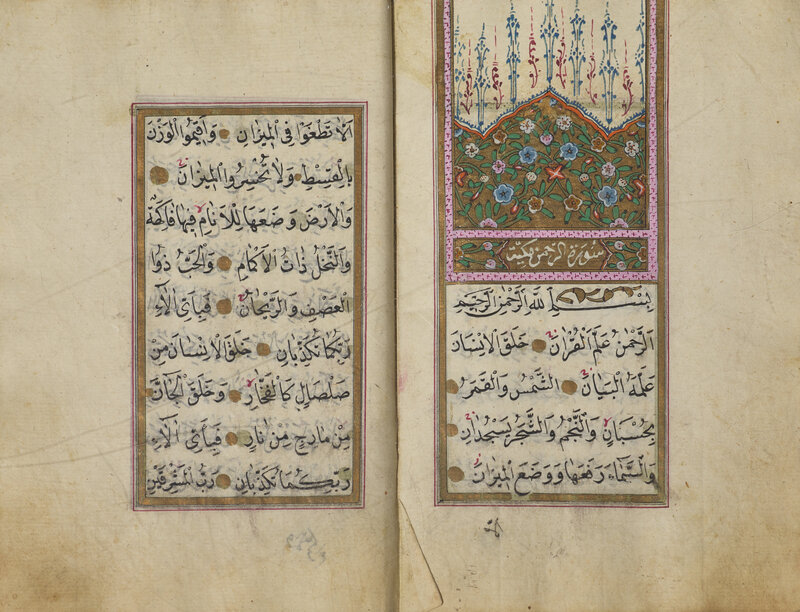 سورة الرحمن مكية
بسم الله الرحمن الرحيم
اَلرَّحْمٰنُ عَلَّمَ الْقُرْاٰنَ خَلَقَ الْاِنْسَانَ
عَلَّمَهُ الْبَيَانَ اَلشَّمْسُ وَالْقَمَرُ
بِحُسْبَانٍ وَالنَّجْمُ وَالشَّجَرُ يَسْجُدَانِ
وَالسَّمَاءَ رَفَعَهَا وَوَضَعَ الْمِيزَانَ
اَلَّا
اَلَّا تَطْغَوْا فِى الْمِيزَانِ وَاَقِيمُوا الْوَزْنَ
بِالْقِسْطِ وَلَا تُخْسِرُوا الْمِيزَانَ
وَالْاَرْضَ وَضَعَهَا لِلْاَنَامِ فِيهَا فَاكِهَةٌ
وَالنَّخْلُ ذَاتُ الْاَكْمَامِ وَالْحَبُّ ذُوا
الْعَصْفِ وَالرَّيْحَانُ فَبِاَىِّ اٰلَاءِ
رَبِّكُمَا تُكَذِّبَانِ خَلَقَ الْاِنْسَانَ مِنْ
صَلْصَالٍ كَالْفَخَّارِ وَخَلَقَ الْجَانَّ
مِنْ مَارِجٍ مِنْ نَارٍ فَبِاَىِّ اٰلَاءِ
رَبِّكُمَا تُكَذِّبَانِ رَبُّ الْمَشْرِقَيْنِ